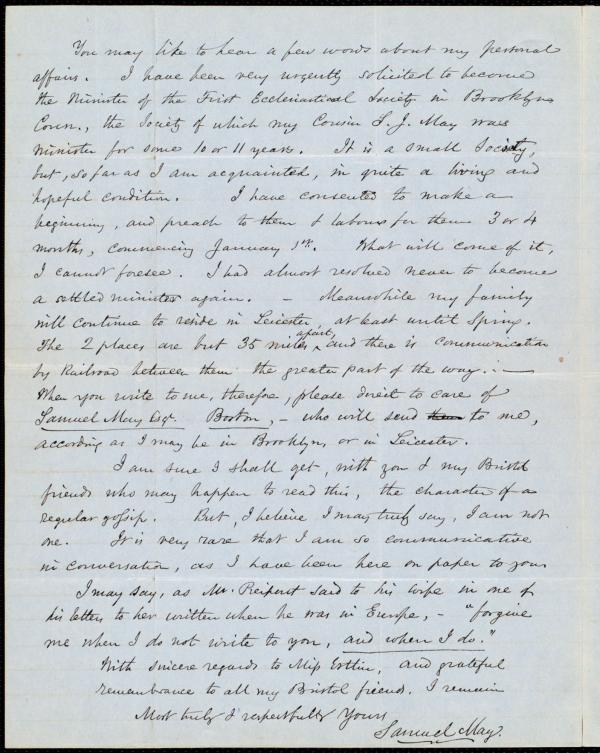 You may like to hear a few words about my personal
affairs. I have been very urgently solicited to become
the Minister of the First Ecclesiastical Society in Brooklyn
Conn., the Society of which my Cousin S. J. May was
Minister for some 10 or 11 years. It is a small Society,
but, so far as I am acquainted, in quite a living and
hopeful condition. I have consented to make a
beginning, and preach to them & labour for them 3 or 4
months, commencing January 1st. What will come of it,
I cannot foresee. I had almost resolved never to become
a settled minister again. – Meanwhile my family
will continue to reside in Leicester, at least until Spring.
The 2 places are but 35 miles apart, and there is communication
by Railroad between them the greater part of the way. –
When you write to me, therefore, please direct to care of
Samuel May Esqr. Boston, – who will send them to me,
according as I may be in Brooklyn, or in Leicester.
I am sure I shall get, with you & my Bristol
friends who may happen to read this, the character of a
regular gossip. But, I believe I may truly say, I am not
one. It is very rare that I am so communicative
in conversation, as I have been here on paper to you
I may say, as Mr. Peirpont said to his wife in one of
his letters to her written when he was in Europe, – "forgive
me when I do not write to you, and when I do."
With sincere regards to Miss Estlin, and grateful
remembrance to all my Bristol friends. I remain
Most truly & respectfully Yours
Samuel May.